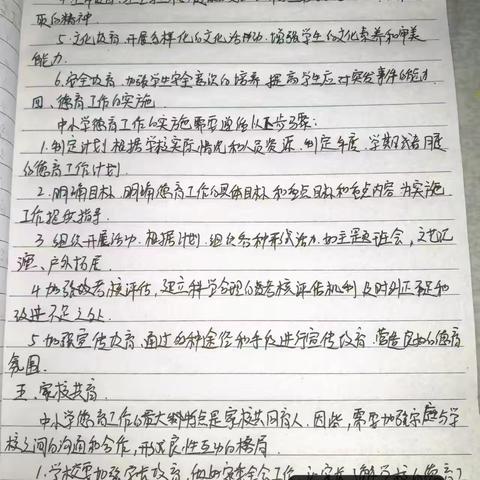 质的精神.
5. 文化教育. 开展多样化的文化活动, 增强学生的文化素养和审美
能力.
6. 安全教育. 加强学生安全意识的培养, 提高学生应对突发事件的能力.
四、德育工作的实施
中小学德育工作的实施需要遵循以下步骤:
1. 制定计划. 根据学校实际情况和人员资源, 制定年度、学期或者月度
的德育工作计划.
2. 明确目标. 明确德育工作的具体目标和重点目标和重点内容为实施
工作提供指导.
3. 组织开展活动. 根据计划. 组织各种形式活力. 如主题班会, 文艺汇
演、户外拓展.
4. 加强考核评估, 建立科学合理的考核评估机制, 及时纠正和
改进不足之处.
5. 加强宣传教育, 通过多种途径和手段进行宣传教育, 营造良好的德育
氛围.
五、家校共育.
中小学德育工作的最大特点是家校共同育人. 因此, 需要加强家庭与学
校之间的沟通和合作, 形成良性互动的格局.
1. 学校要加强家长教育,